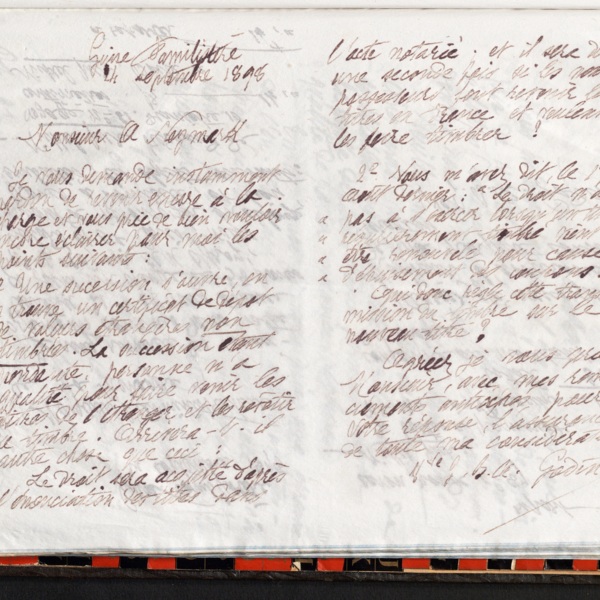 Guise Familistère
4 septembre 1898
Monsieur A Neymark
Je vous demande instamment
pardon de revenir encore à la
charge et vous prie de bien vouloir
encore éclairer pour moi les
points suivants :
Une succession s'ouvre, on
trouve un certificat de dépôt
de valeurs étrangères non
timbrées. La succession étant
personne n'a
qualité pour faire venir les
titres de l'étranger et les revêtir
du timbre. Arrivera-t-il
autre chose que ceci :
Le droit sera acquitté d'après
l'énonciation des titres dans
l'acte notarié ; et il sera
une seconde fois si les
possesseurs font revenir les
titres en France et
les faire timbrer ?
2° Vous m'avez dit, le
août dernier : "Le droit n'a
" pas à s'exercer lorsqu'un
"
" être renouvelé pour cause
" d'épuisement de coupons.
Qui donc règle cette
mission de timbre sur le
nouveau titre ?
Agréez, je vous prie
Monsieur, avec mes
ciements anticipés pour
votre réponse, l'assurance
de toute ma considération
Vve J. B. A. Godin